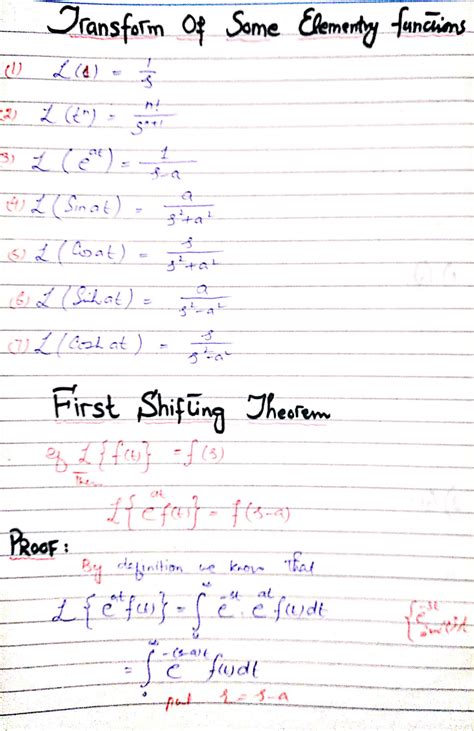 Transform Of Some Elementry functions
(1) L(1) = 1/s
(2) L(tⁿ) = n!/sⁿ⁺¹
(3) L(e^at) = 1/s-a
(4) L(Sin at) = a/s²+a²
(5) L(Cos at) = s/s²+a²
(6) L(Sinh at) = a/s²-a²
(7) L(Cosh at) = s/s²-a²
First Shifting Theorem
if L{f(t)} = f(s)
Then
L{e^at f(t)} = f(s-a)
PROOF:
By definition we know that
L{e^at f(t)} = ∫₀^∞ e^-st . e^at f(t)dt
= ∫₀^∞ e^-(s-a)t f(t)dt
put = s-a